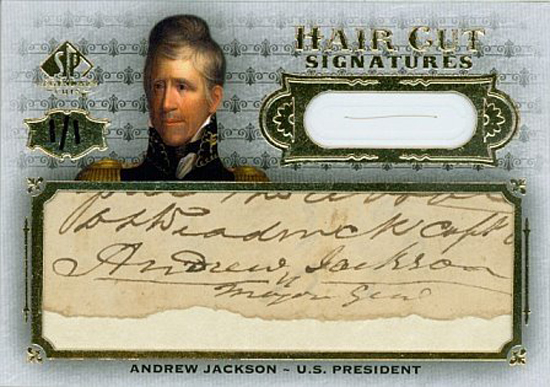 SP
LEGENDARY
CUTS
HAIR CUT
SIGNATURES
1/1
Andrew Jackson
Major Genl
ANDREW JACKSON ~ U.S. PRESIDENT